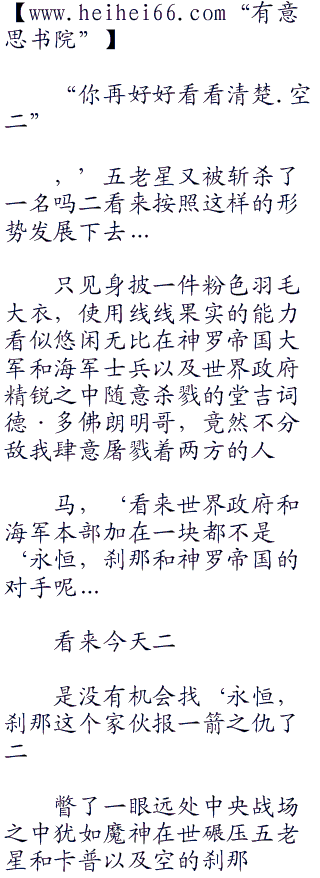 【www.heihei66.com“有意
思书院”】
“你再好好看看清楚.空
二”
，’五老星又被斩杀了
一名吗二看来按照这样的形
势发展下去…
只见身披一件粉色羽毛
大衣，使用线线果实的能力
看似悠闲无比在神罗帝国大
军和海军士兵以及世界政府
精锐之中随意杀戮的堂吉诃
德·多佛朗明哥，竟然不分
敌我肆意屠戮着两方的人
马，‘看来世界政府和
海军本部加在一块都不是
‘永恒，刹那和神罗帝国的
对手呢…
看来今天二
是没有机会找‘永恒，
刹那这个家伙报一箭之仇了
二
瞥了一眼远处中央战场
之中犹如魔神在世碾压五老
星和卡普以及空的刹那